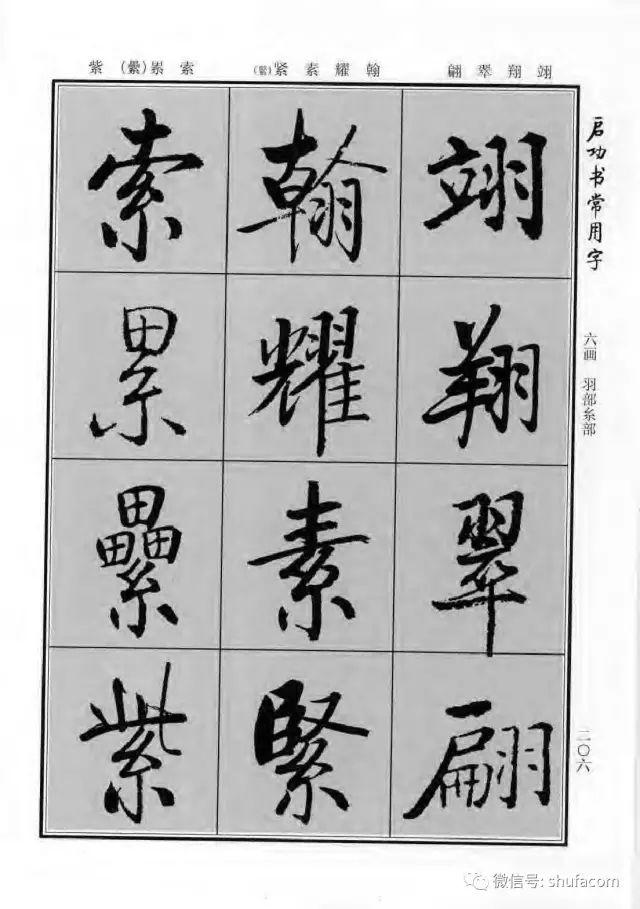 翊翔翠翩
翰耀素紧(緊)
索累(纍)紫
启功书常用字
六画 羽部糸部
二〇六
翊
翔
翠
翩
翰
耀
素
緊
索
累
纍
紫
微信号: shufacom